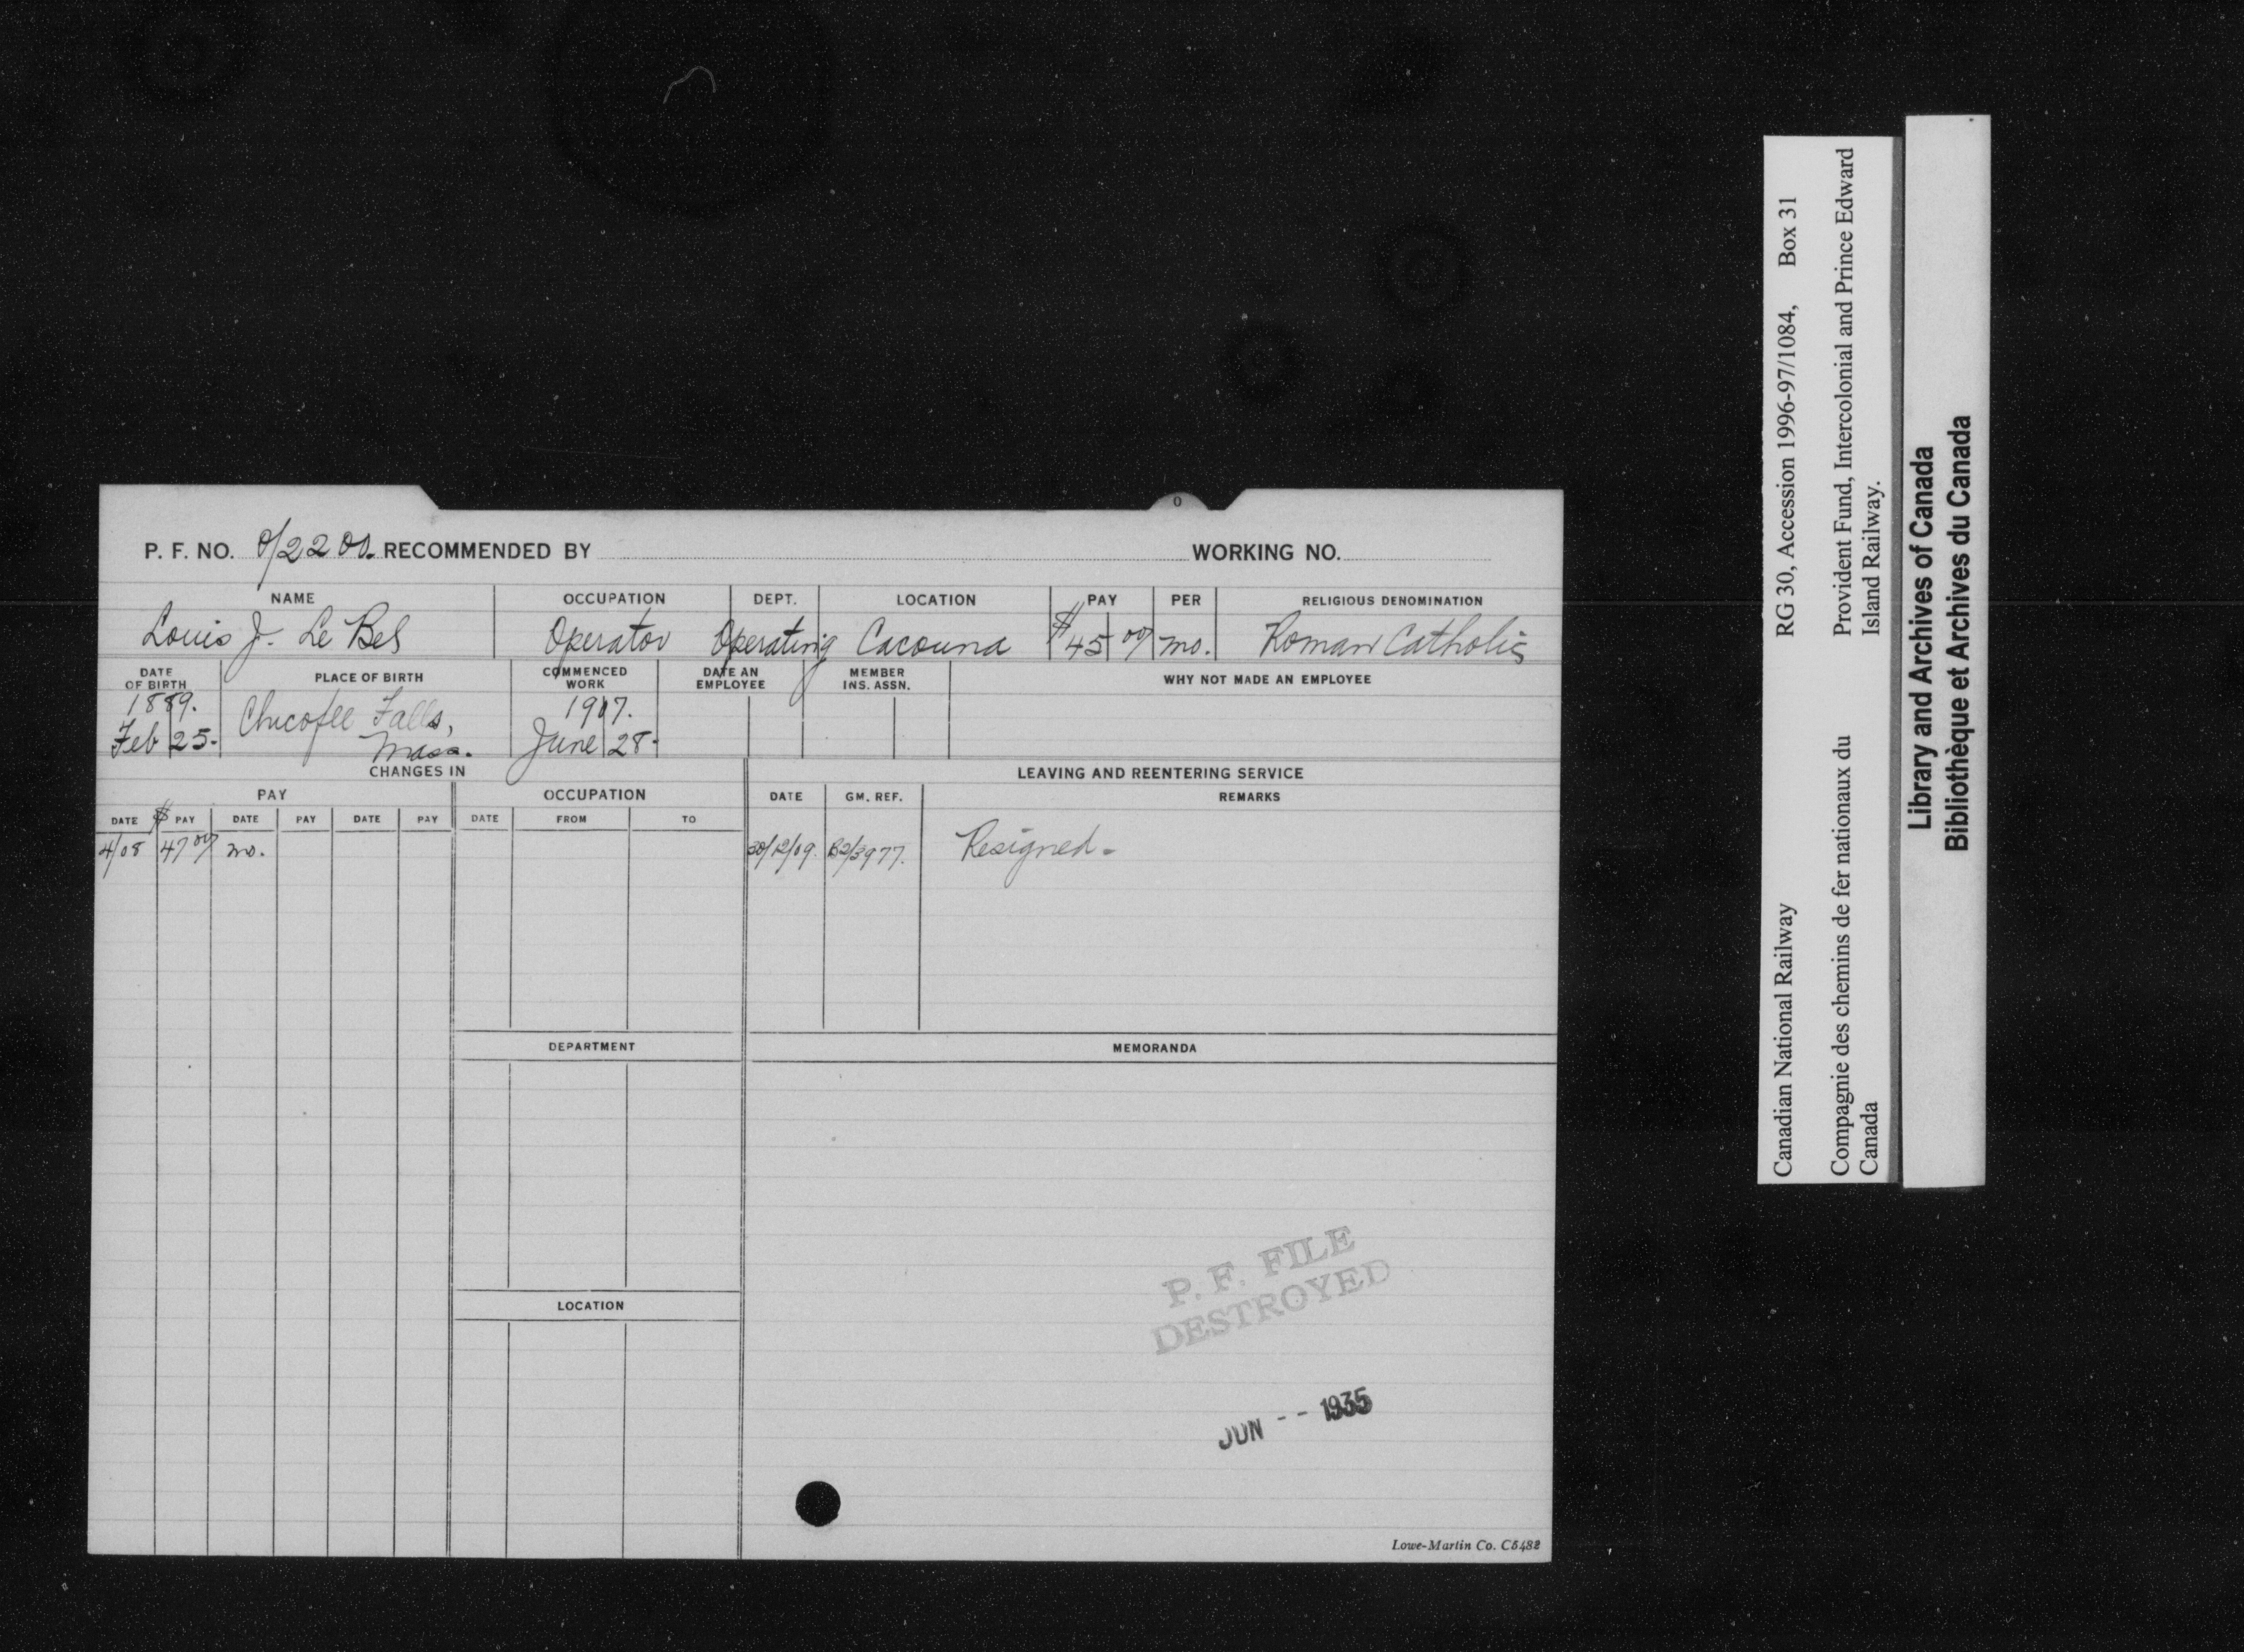 O
P. F. NO. 0/2200. RECOMMENDED BY WORKING NO.
NAME OCCUPATION DEPT. LOCATION PAY PER RELIGIOUS DENOMINATION
Louis J. Le Bel Operator Operating Cacouna $45 00 mo. Roman Catholic
DATE OF BIRTH PLACE OF BIRTH COMMENCED WORK DATE AN EMPLOYEE MEMBER INS. ASSN. WHY NOT MADE AN EMPLOYEE
1889. Chicofee Falls, 1907.
Feb 25- Mass. June 28-
CHANGES IN LEAVING AND REENTERING SERVICE
PAY OCCUPATION DATE GM. REF. REMARKS
DATE $ PAY DATE PAY DATE PAY DATE FROM TO
4/08 47 00 mo. 30/12/09. B2/3977. Resigned-
DEPARTMENT MEMORANDA
LOCATION
P. F. FILE
DESTROYED
JUN -- 1935
Lowe-Martin Co. C5482
Canadian National Railway RG 30, Accession 1996-97/1084, Box 31
Compagnie des chemins de fer nationaux du Canada
Provident Fund, Intercolonial and Prince Edward Island Railway.
Library and Archives of Canada
Bibliothèque et Archives du Canada